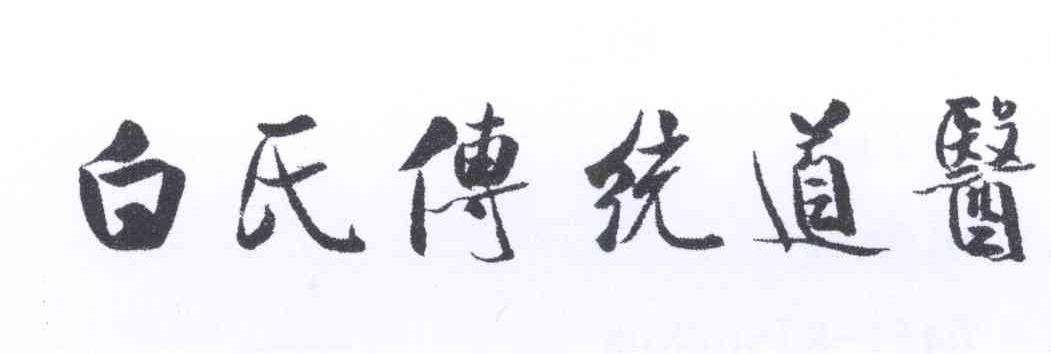 白氏傳統道醫